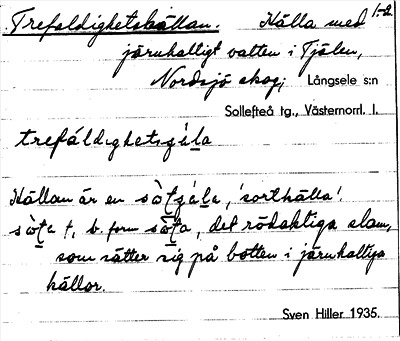 Trefaldighetskällan. Källa med 1-2.
järnhalligt vatten i Tjälen,
Nordsjö skog; Långsele s:n
Sollefteå tg., Västernorrl. l.
trefáldighetsgä́la
Källan är en sò̀tgä́la, 'sortkälla'.
sò̀ta f, b. form sò̀ta, det rödaktiga slam,
som sätter sig på botten i järnhaltiga
källor.
Sven Hiller 1935.